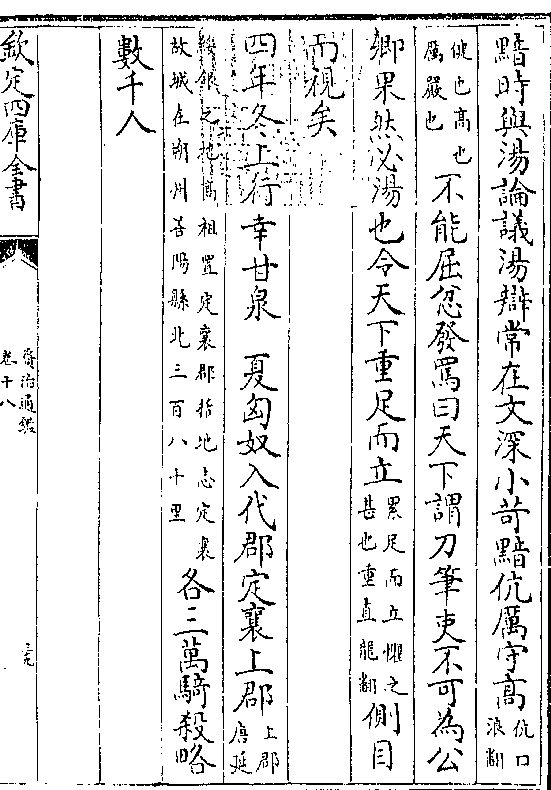 黯時與湯論議湯辯常在文深小苛黯伉厲守髙伉口浪翻
健也髙也厲嚴也不能屈忿發罵曰天下謂刀筆吏不可為公
卿果然必湯也令天下重足而立累足而立懼之甚也重直龍翻側目
而視矣
四年冬上行幸甘泉 夏匈奴入代郡定襄上郡上郡唐延
綏銀之地髙祖置定襄郡括地志定襄故城在朔州善陽縣北三百八十里各三萬騎殺略
數千人
欽定四庫全書
資治通鑑
卷十八